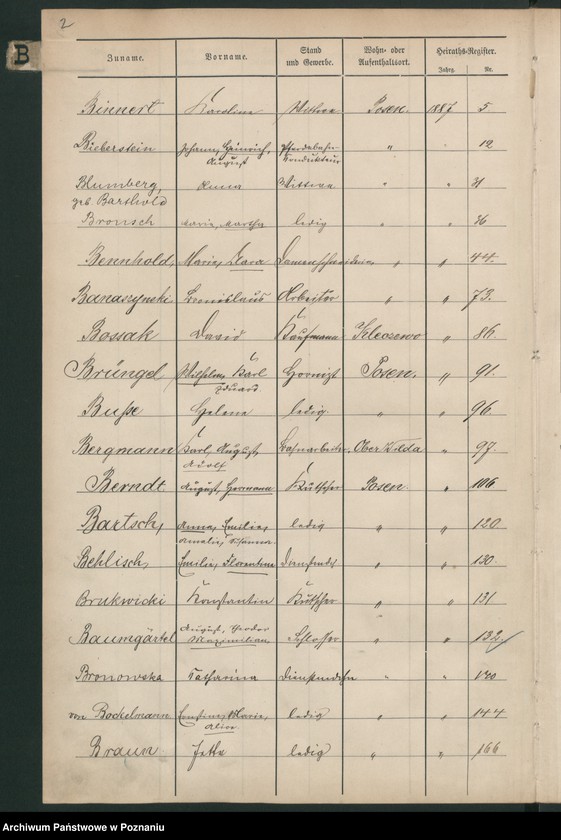 2
B
Zuname. Vorname. Stand und Gewerbe. Wohn- oder Aufenthaltsort. Heiraths-Register.
Jahrg. Nr.
Binnert Karoline Wittwe Posen. 1887 5
Bieberstein Johann, Heinrich, Pferdebahn- " " 12
August Kondukteur
Blumberg, Anna Wittwe " " 31
geb. Barthold
Bronsch Maria, Martha ledig " " 36
Bennhold, Maria, Clara Damenschneiderin " " 44.
Banaszynski Bronislaus Arbeiter " " 73.
Bossak David Kaufmann Kleczewo " 86.
Brüngel Wilhelm, Karl Hornist Posen. " 91.
Eduard.
Buße Helene ledig. " " 96.
Bergmann Karl, August, Bahnarbeiter, Ober Wilda " 97.
Adolf
Berndt August, Hermann Kutscher Posen " 106
Bartsch, Anna, Emilie, ledig " " 120
Amalie, Johanna
Behlisch, Emilie, Florentine " " 130.
Brukwicki Konstantin Kutscher " " 131.
Baumgärtel August, Theodor Schlosser " " 132
Maximilian
Bronowska Katharina " " 140
von Bockelmann Marie, ledig " " 144
Alice
Braun Jette ledig " " 166
Archiwum Państwowe w Poznaniu